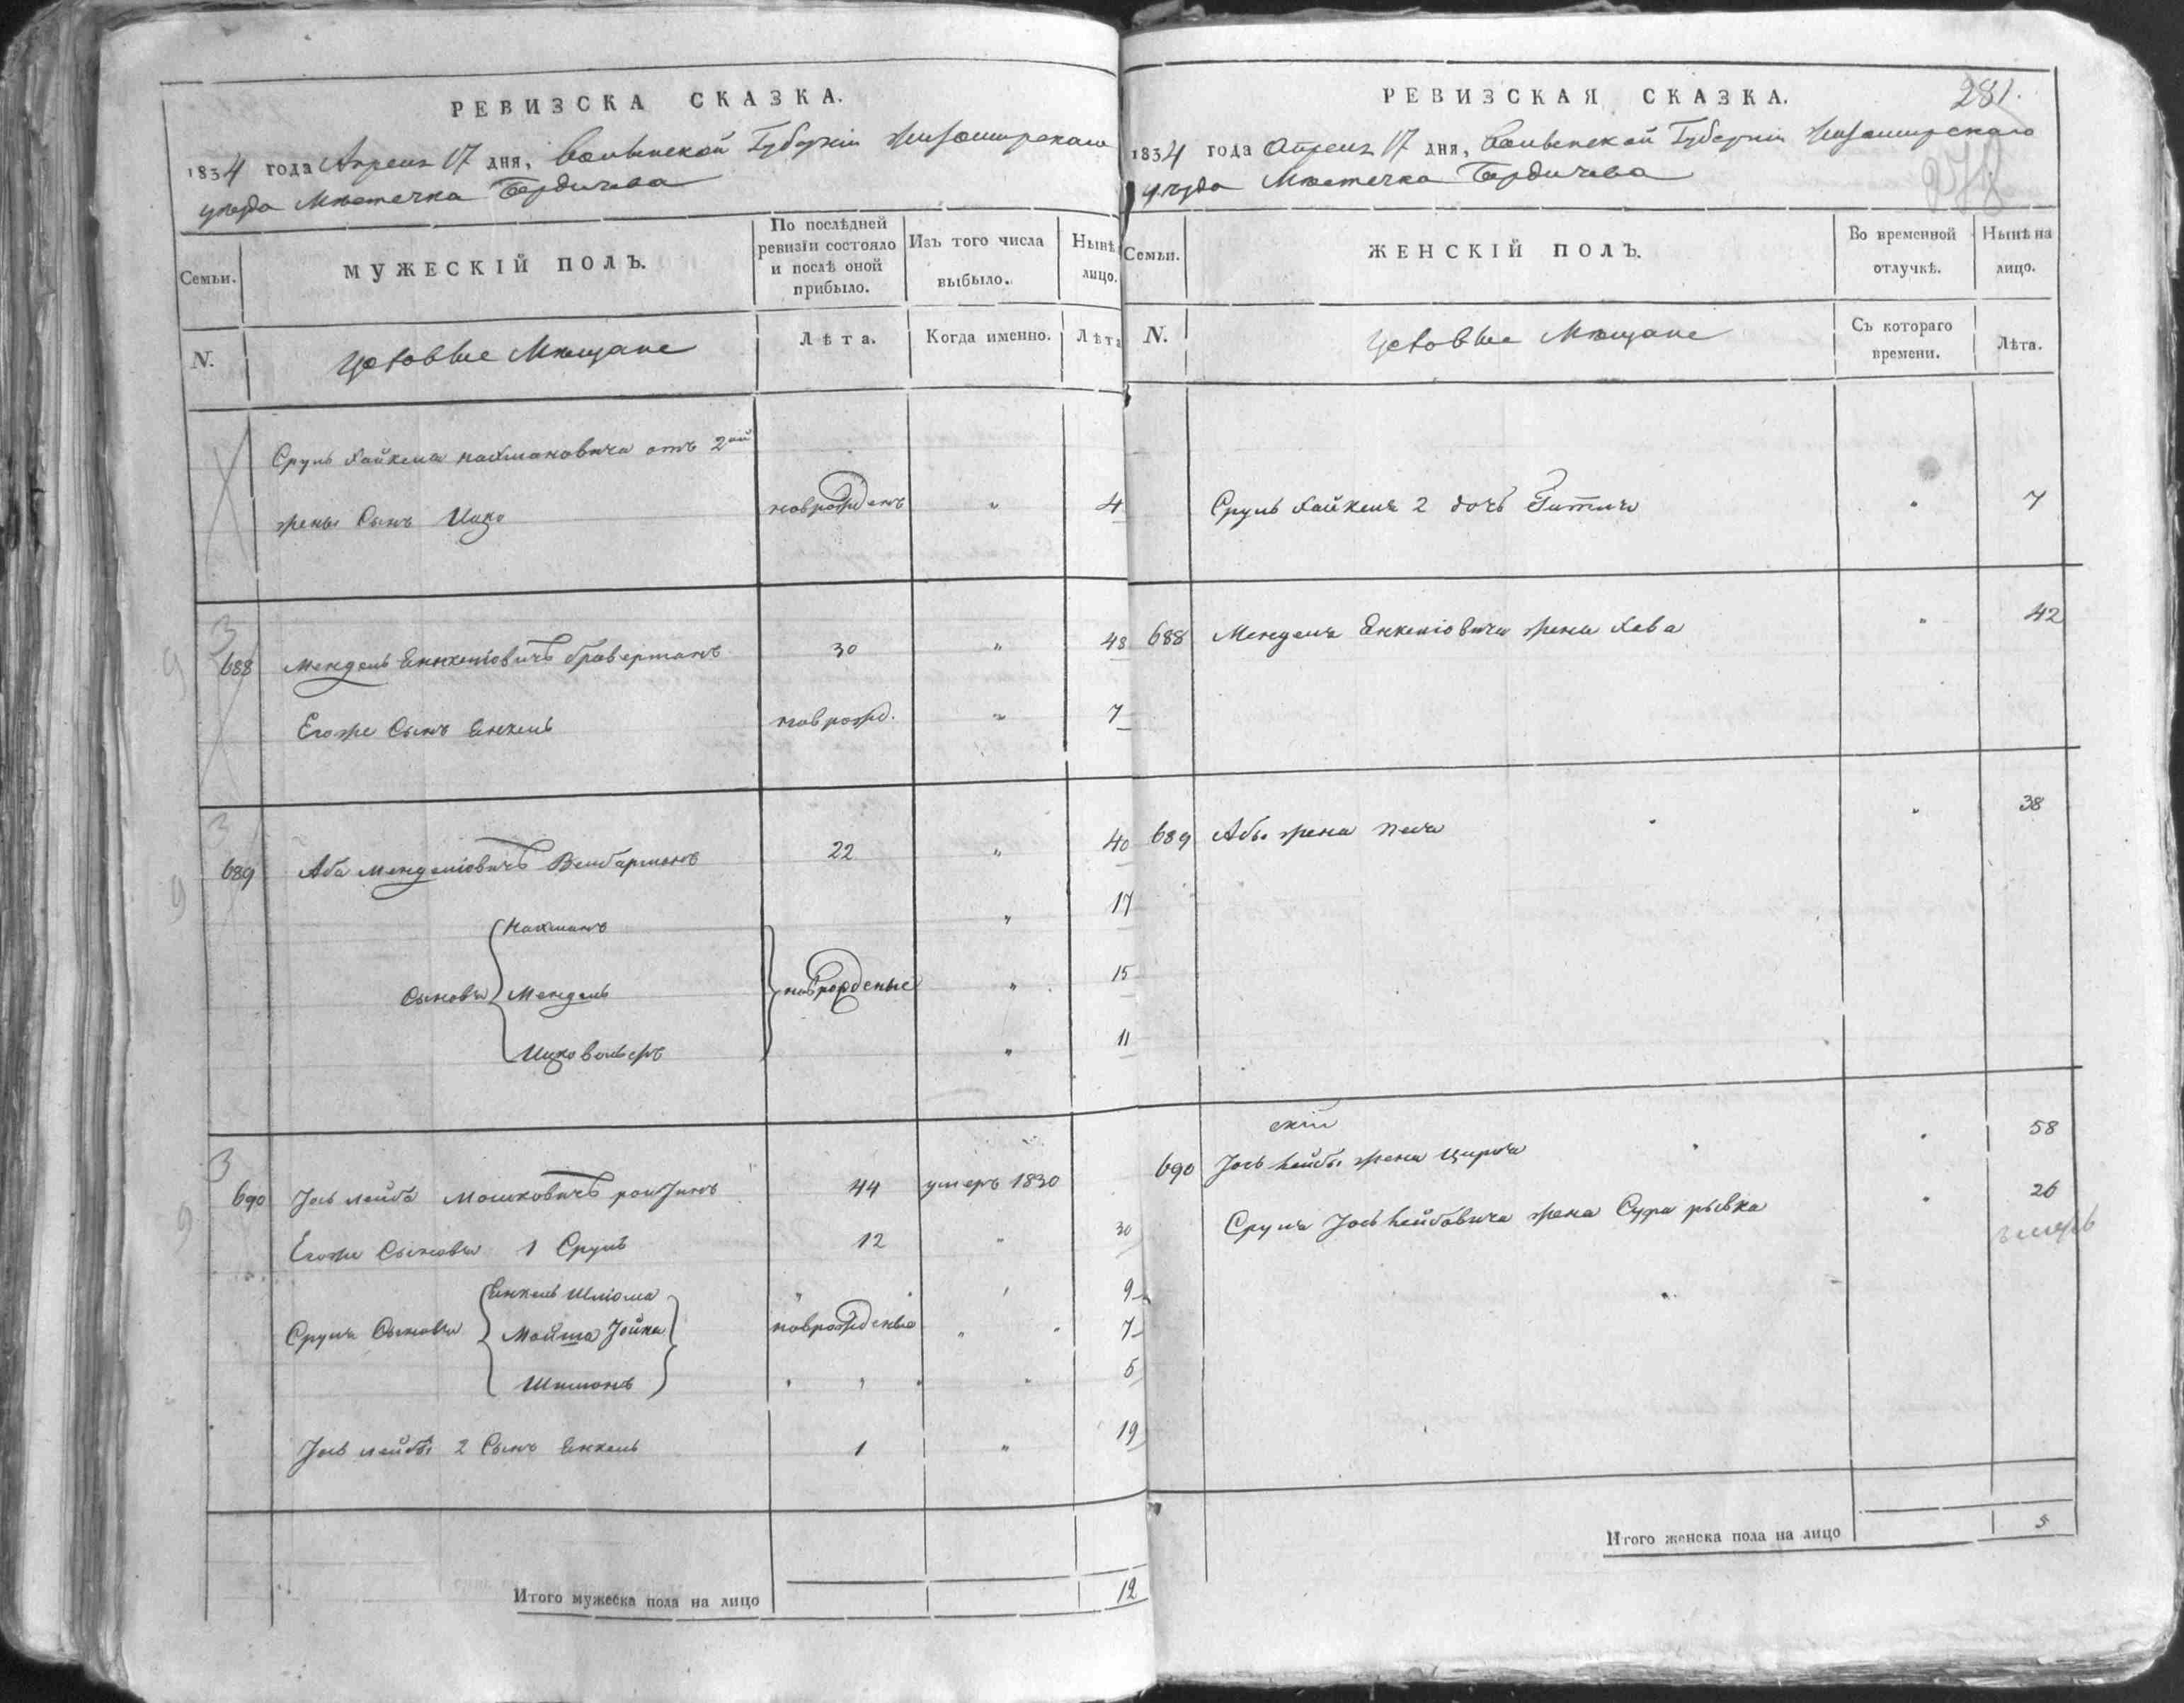 РЕВИЗСКА СКАЗКА.
1834 года Апреля 17 дня, Волынской Губерніи Житомирскаго
уезда Мѣстечка Бердичева
Семьи.
МУЖЕСКІЙ ПОЛЪ.
По послѣдней ревизіи состояло и послѣ оной прибыло.
Изъ того числа выбыло.
Нынѣ лицо.
N.
Цеховые Мѣщане
Лѣта.
Когда именно.
Лѣта
Сруль Хайкеля Нахмановича отъ 2ой
жены Сынъ Ицко новорожденъ " 4
688 Мендель Енкеліовичъ 30 " 48
Егоже Сынъ Енкель новорожд. " 7
689 Аба Менделіовичъ 22 " 40
Нахманъ " 17
Сыновья Мендель новорожденые " 15
Ицко Вольфъ " 11
690 Іось Лейба Мошковичъ 44 умеръ 1830
Егоже Сыновья 1 Сруль 12 " 30
Енкель Шліома " 9
Сруля Сыновья Мойша Іойна новорожденые " 7
Шимонъ " 5
Іось Лейбы 2 Сынъ Енкель 1 " 19
Итого мужеска пола на лицо 12
РЕВИЗСКАЯ СКАЗКА.
281.
1834 года Апреля 17 дня, Волынской Губерніи Житомирскаго
уезда Мѣстечка Бердичева
Семьи.
ЖЕНСКІЙ ПОЛЪ.
Во временной отлучкѣ.
Нынѣ на лицо.
N.
Цеховые Мѣщане
Съ котораго времени.
Лѣта.
Сруль Хайкеля 2 дочь Гитля " 7
688 Менделя Енкеліовича жена Хава " 42
689 Абы жена Песя " 38
690 Іось Лейбы жена Цирля " 58
Сруля Іось Лейбовича жена Сура Рывка " 26
Итого женска пола на лицо 5